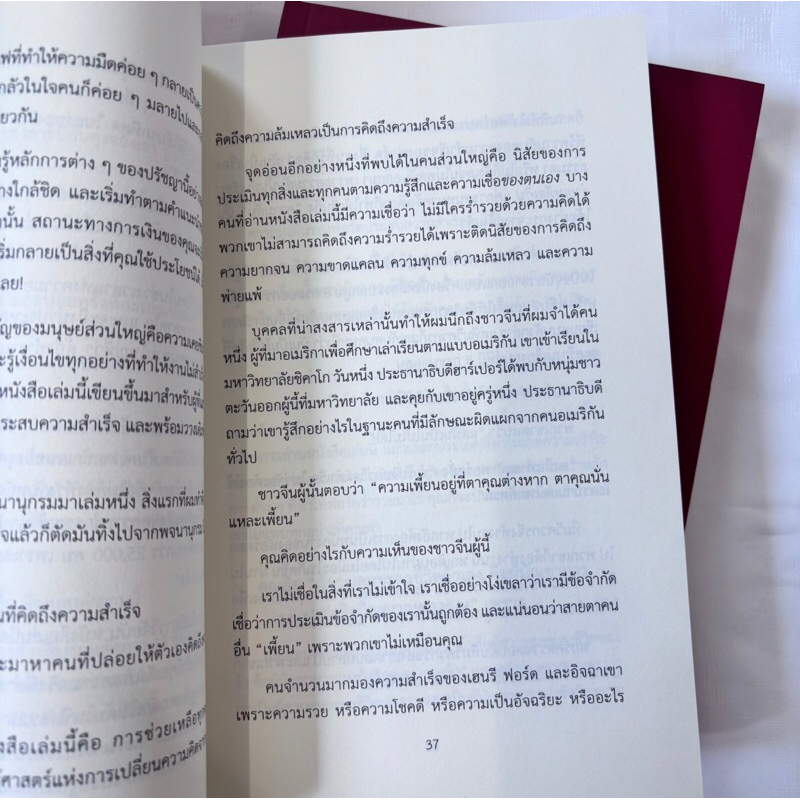 ฟที่ทำให้ความมืดค่อย ๆ กลายเป็น
กลัวในใจคนก็ค่อย ๆ มลายไป
ยวกัน
รู้หลักการต่าง ๆ ของปรัชญานี้
างใกล้ชิด และเริ่มทำตามคำแนะนำ
านั้น สถานะทางการเงินของคุณ
ริ่มกลายเป็นสิ่งที่คุณใช้ประโยชน์ได้
เลย!
ัญของมนุษย์ส่วนใหญ่คือความ
ะรู้เงื่อนไขทุกอย่างที่ทำให้งานไม่
หนังสือเล่มนี้เขียนขึ้นมาสำหรับผู้
ระสบความสำเร็จ และพร้อมวาง
นานุกรมมาเล่มหนึ่ง สิ่งแรกที่ผม
จแล้วก็ตัดมันทิ้งไปจากพจนานุกรม
นที่คิดถึงความสำเร็จ
ะมาหาคนที่ปล่อยให้ตัวเองคิด
งสือเล่มนี้คือ การช่วยเหลือ
ศาสตร์แห่งการเปลี่ยนความคิด
คิดถึงความล้มเหลวเป็นการคิดถึงความสำเร็จ
จุดอ่อนอีกอย่างหนึ่งที่พบได้ในคนส่วนใหญ่คือ นิสัยของการ
ประเมินทุกสิ่งและทุกคนตามความรู้สึกและความเชื่อของตนเอง บาง
คนที่อ่านหนังสือเล่มนี้มีความเชื่อว่า ไม่มีใครร่ำรวยด้วยความคิดได้
พวกเขาไม่สามารถคิดถึงความร่ำรวยได้เพราะติดนิสัยของการคิดถึง
ความยากจน ความขาดแคลน ความทุกข์ ความล้มเหลว และความ
พ่ายแพ้
บุคคลที่น่าสงสารเหล่านั้นทำให้ผมนึกถึงชาวจีนที่ผมจำได้คน
หนึ่ง ผู้ที่มาอเมริกาเพื่อศึกษาเล่าเรียนตามแบบอเมริกัน เขาเข้าเรียนใน
มหาวิทยาลัยชิคาโก วันหนึ่ง ประธานาธิบดีฮาร์เปอร์ได้พบกับหนุ่มชาว
ตะวันออกผู้นี้ที่มหาวิทยาลัย และคุยกับเขาอยู่ครู่หนึ่ง ประธานาธิบดี
ถามว่าเขารู้สึกอย่างไรในฐานะคนที่มีลักษณะผิดแผกจากคนอเมริกัน
ทั่วไป
ชาวจีนผู้นั้นตอบว่า “ความเพี้ยนอยู่ที่ตาคุณต่างหาก ตาคุณนั่น
แหละเพี้ยน”
คุณคิดอย่างไรกับความเห็นของชาวจีนผู้นี้
เราไม่เชื่อในสิ่งที่เราไม่เข้าใจ เราเชื่ออย่างโง่เขลาว่าเรามีข้อจำกัด
เชื่อว่าการประเมินข้อจำกัดของเรานั้นถูกต้อง และแน่นอนว่าสายตาคน
อื่น “เพี้ยน” เพราะพวกเขาไม่เหมือนคุณ
คนจำนวนมากมองความสำเร็จของเฮนรี ฟอร์ด และอิจฉาเขา
เพราะความรวย หรือความโชคดี หรือความเป็นอัจฉริยะ หรืออะไร
37